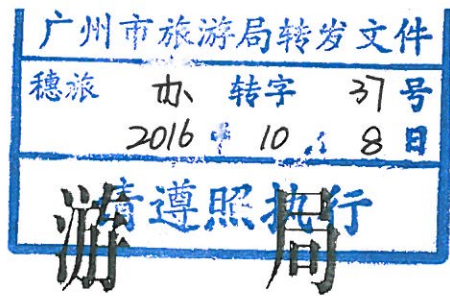 广州市旅游局转发文件
穗旅 办 转字 37 号
2016 年 10 月 8 日
请遵照执行
游 局